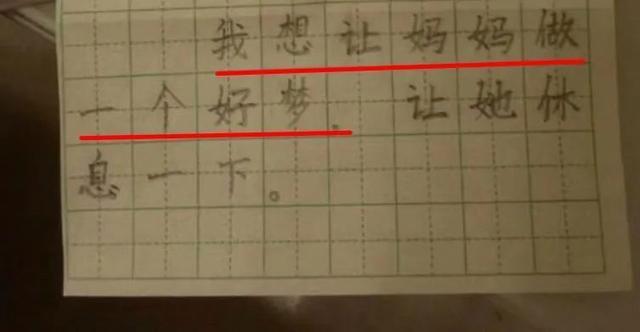 我想让妈妈做
一个好梦。让她休
息一下。